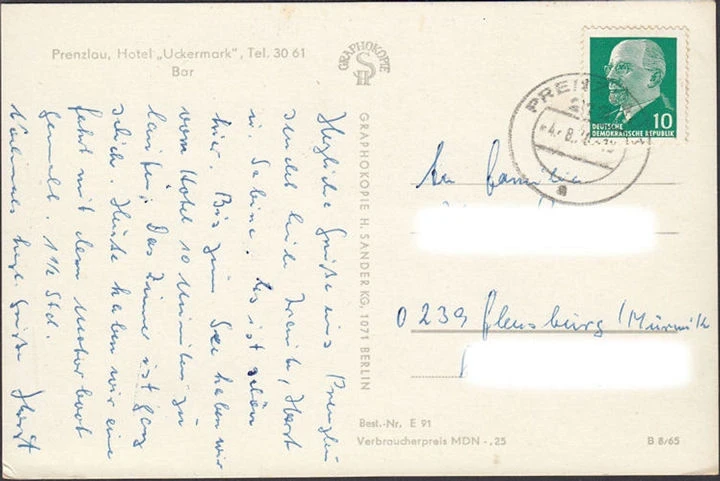 Prenzlau, Hotel „Uckermark", Tel. 30 61
Bar
GRAPHOKOPIE
H S
GRAPHOKOPIE H. SANDER KG, 1071 BERLIN
Herzliche Grüße aus Prenzlau
sendet Euch Horst
u. Sabine. Es ist schön
hier. Bis zum See haben wir
vom Hotel 10 Minuten zu
laufen. Das Zimmer ist ganz
Heute haben wir eine
fahrt mit dem Motorboot
gemacht. 1½ Std.
Nochmals herzl. Grüße Horst
10
DEUTSCHE
DEMOKRATISCHE REPUBLIK
An Familie
0239 Flensburg/Mürwik
Best.-Nr. E 91
Verbraucherpreis MDN -,25
B 8/65